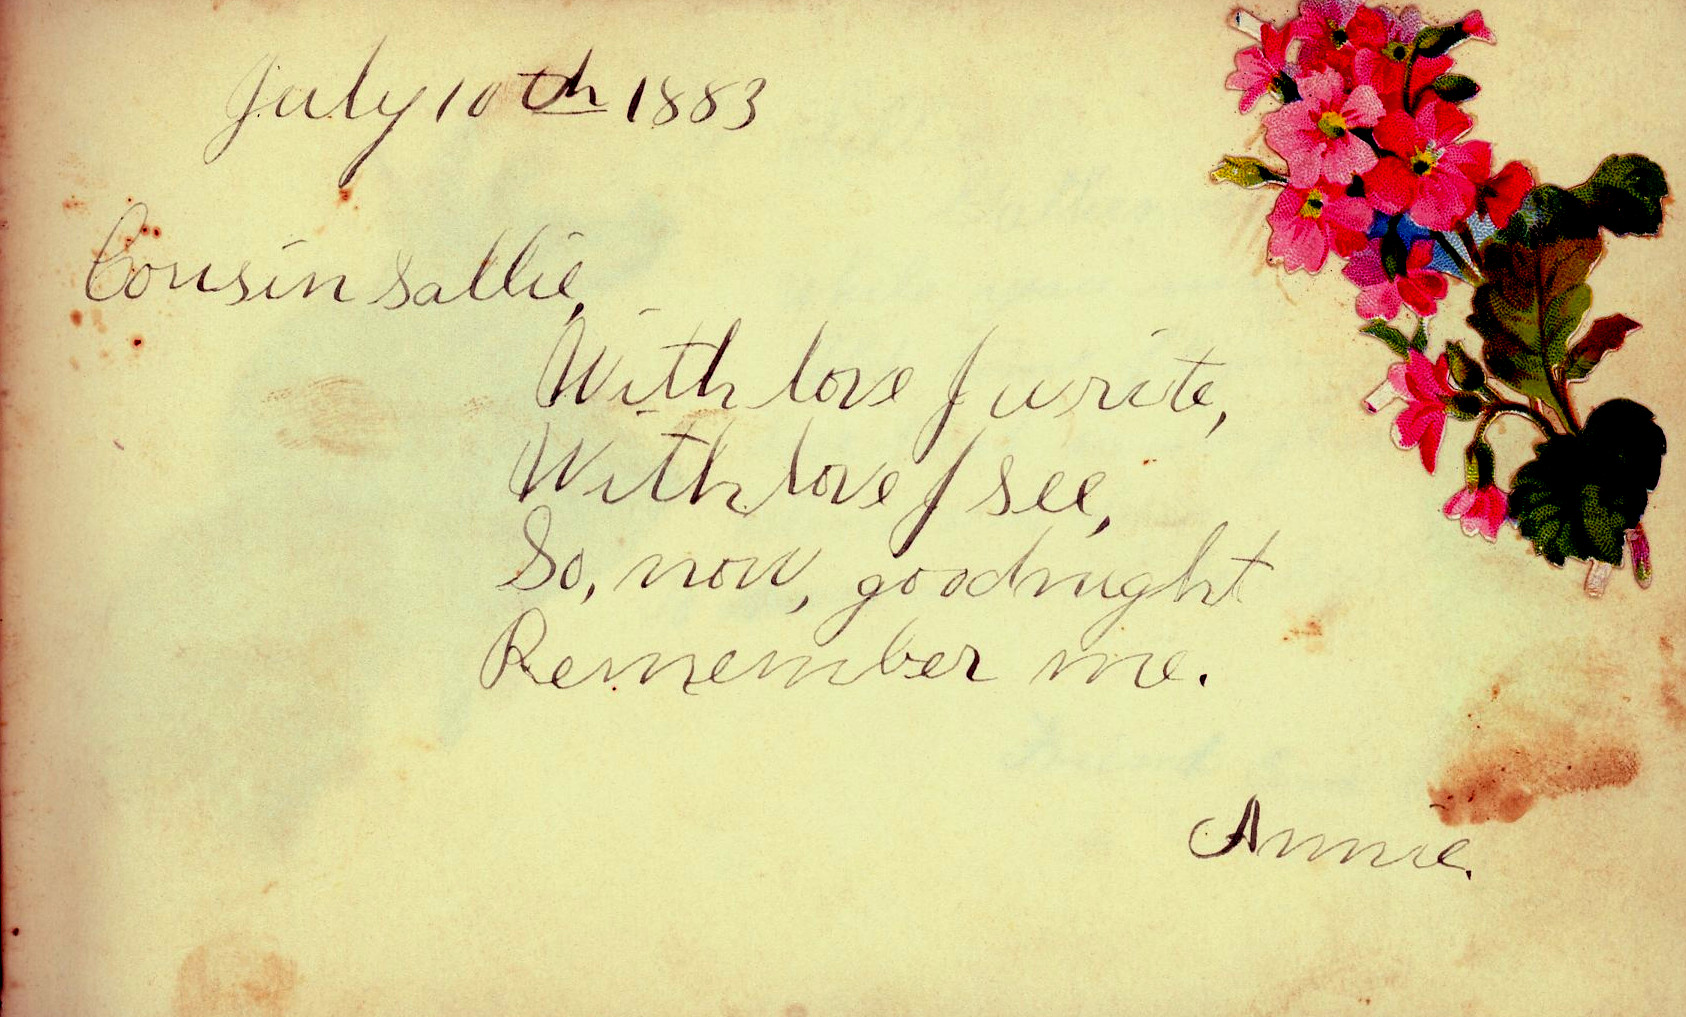 July 10th 1883
Cousin Sallie,
With love I write,
With love I see,
So, now, goodnight
Remember me.
Annie.